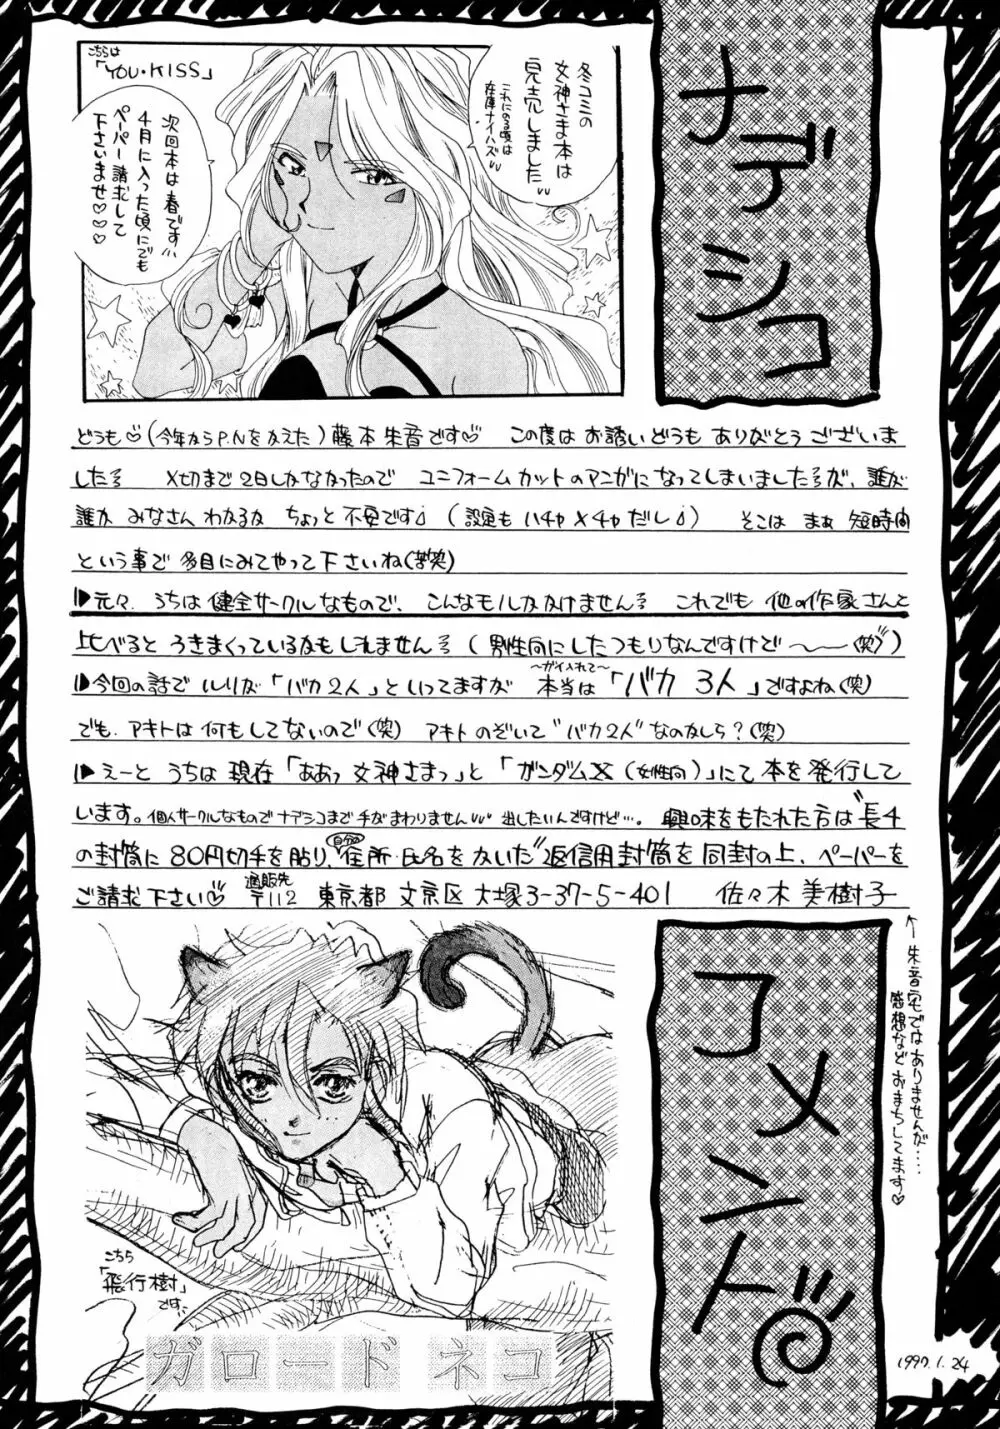 ナデシコ
冬コミの
女神さま本は
完売しました
これにのる頃は
在庫ナイハズ
こちらは
「YOU・KISS」
次回本は春です
4月に入った頃にでも
ペーパー請求して
下さいませ♡♡♡
どうも♡(今年からP.Nをかえた)藤本朱音です♡ この度はお誘いどうもありがとうございま
した 〆切まで2日しかなかったので ユニフォームカットのアンガになってしまいましたが、誰が
誰か みなさんわかるか ちょっと不安です(設定もハチャメチャだし) そこはまぁ短時間
という事で多目にみてやって下さいね(苦笑)
▶元々、うちは健全サークルなもので、こんなモノしかかけません これでも他の作家さんと
比べるとうきまくっているかもしれません(男性向にしたつもりなんですけど〜(笑))
〜ガイ入れて〜
▶今回の話でルリが「バカ2人」といってますが 本当は「バカ 3人」ですよね(笑)
でも、アキトは何もしてないので(笑) アキトのぞいて"バカ2人"なのかしら?(笑)
▶えーと うちは現在「ああっ女神さまっ」と「ガンダムX(女性向)」にて本を発行して
います。個人サークルなものでナデシコまで手がまわりません 出したいんですけど…。 興味をもたれた方は"長4
の封筒に80円切手を貼り、自分の住所・氏名をかいた"返信用封筒を同封の上、ペーパーを
ご請求下さい♡ 通販先 〒112 東京都文京区大塚3-37-5-401 佐々木美樹子
↑朱音宅ではありませんが……
感想などおまちしてます♡
コメント
こちら
「飛行樹」
です
ガロードネコ
1997.1.24